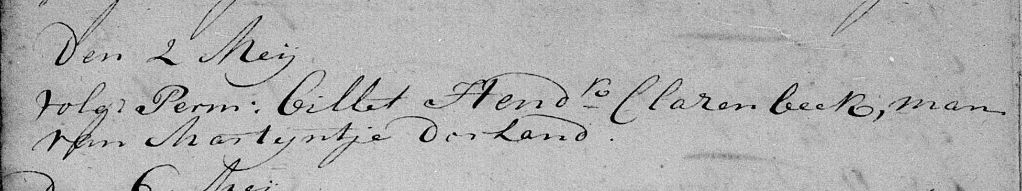 Den 2 Meij
volgs Perm: billet Hendk Clarenbeek, man
van Martyntje Dorland.
Den 6 Meij